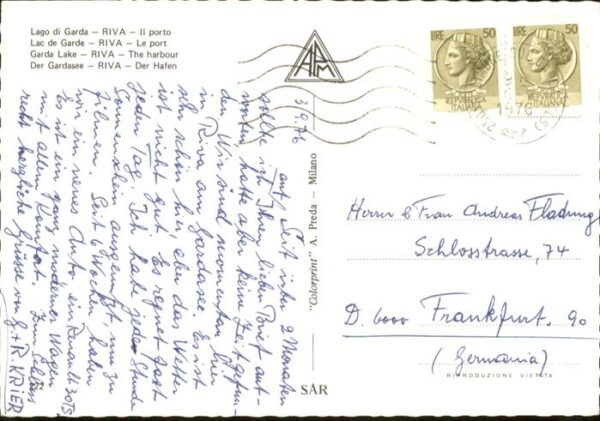 Lago di Garda – RIVA – Il porto
Lac de Garde – RIVA – Le port
Garda Lake – RIVA – The harbour
Der Gardasee – RIVA – Der Hafen
APM
LIRE 50
REPUBBLICA
ITALIANA
LIRE 50
ITALIANA
1976
3/9.76
auf, Seit in den 9 Monaten
sollte ich Ihren lieben Brief ant-
worten, hatte aber keine Zeit gefun-
den. Wir sind momentan hier
in Riva am Gardasee. Es ist
sehr schön hier, aber das Wetter
ist nicht gut. Es regnet fast
jeden Tag. Ich habe jede Stunde
Sonnenschein ausgenützt, um zu
filmen. Seit 6 Wochen haben
wir ein neues Auto, ein Renault 30TS.
Es ist ein ganz moderner Wagen
mit allem Komfort. Zum Schluss
recht herzliche Grüsse von G + R. KRIER
"Colorprint" A. Preda – Milano
SAR
Herrn & Frau Andreas Fladung
Schlosstrasse, 74
D. 6000 Frankfurt. 90
(Germania)
RIPRODUZIONE VIETATA